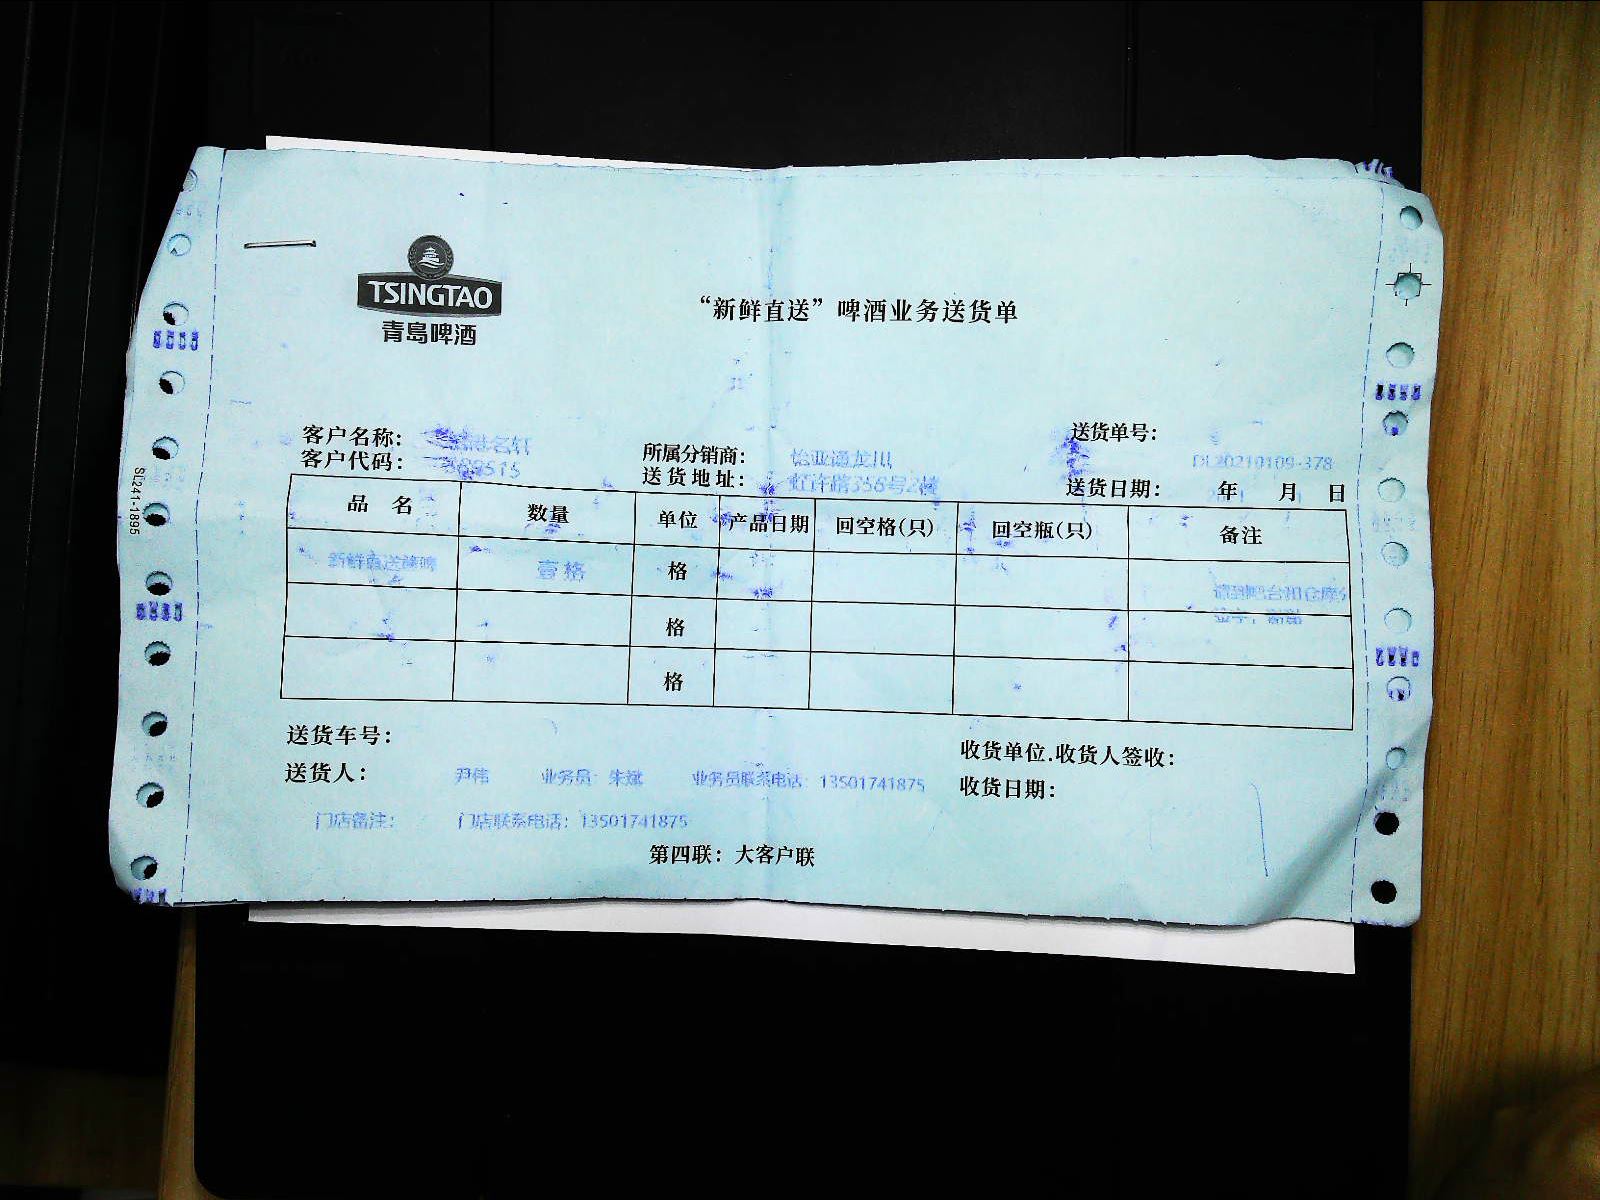 TSINGTAO
青岛啤酒
“新鲜直送”啤酒业务送货单
客户名称: 名轩
送货单号:
客户代码:
所属分销商: 怡亚通龙川
DL20210109-378
送货地址: 虹许路366号2楼
送货日期: 年 月 日
品 名 数量 单位 产品日期 回空格(只) 回空瓶(只) 备注
新鲜直送 壹格 格
格
格
送货车号:
收货单位.收货人签收:
送货人: 尹伟 业务员: 朱斌 业务员联系电话: 13501741875
收货日期:
门店备注: 门店联系电话: 13501741875
第四联: 大客户联
SL241-1895